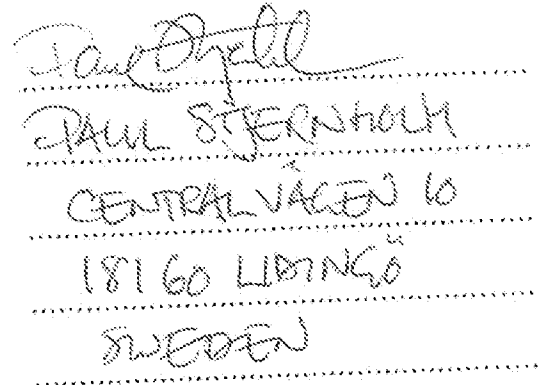 PAUL STJERNHOLM
CENTRALVÄGEN 10
181 60 LIDINGÖ
SWEDEN